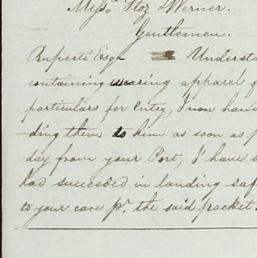 Messrs Floz & Werner.
Gentlemen.
Ruperti Esqr Understa
containing wearing apparel
particulars for Entry, I now hav
ding them to him as soon as p
day from your Port, I have
had succeeded in landing saf
to your care pr. the said packet.